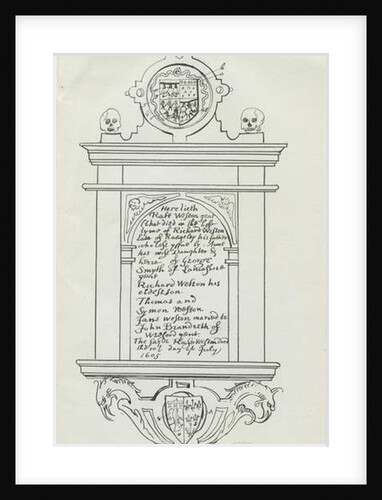 Here lieth
Rafe Weston gent
that died in the life
tyme of Richard Weston
late of Rudgeley his father
who left yssue by Anne
his wife daughter &
heire of George
Smyth of
gent
Richard Weston his
eldest son
Thomas and
Symon Weston
Jane Weston maried to
John Brandreth of
gent.
The saide Rafe Weston died
the day of July
1605